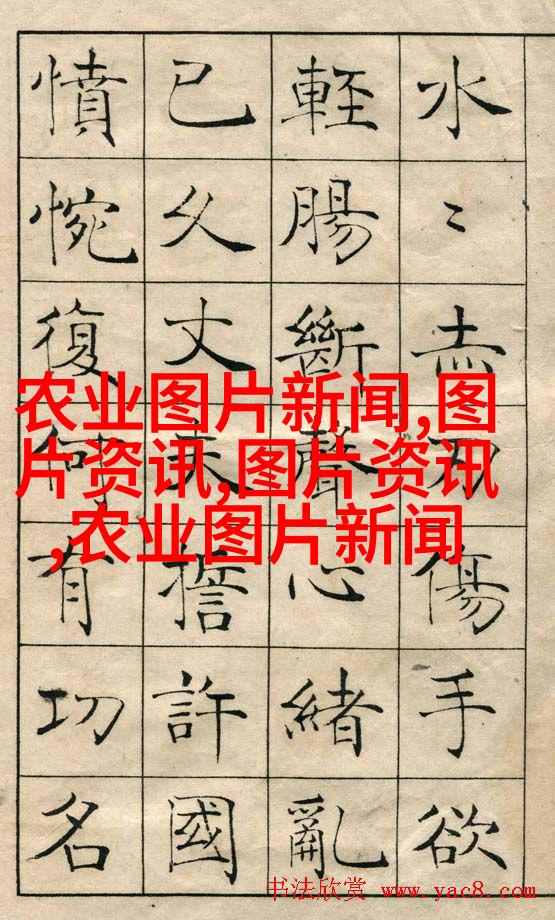 水〻赤刃傷手欲
輕腸斷聲心緒亂
已久丈夫誓許國
憤惋復何有功名
农业图片新闻,图
片资讯,图片资讯
,农业图片新闻
书法欣赏 www.yac8.com